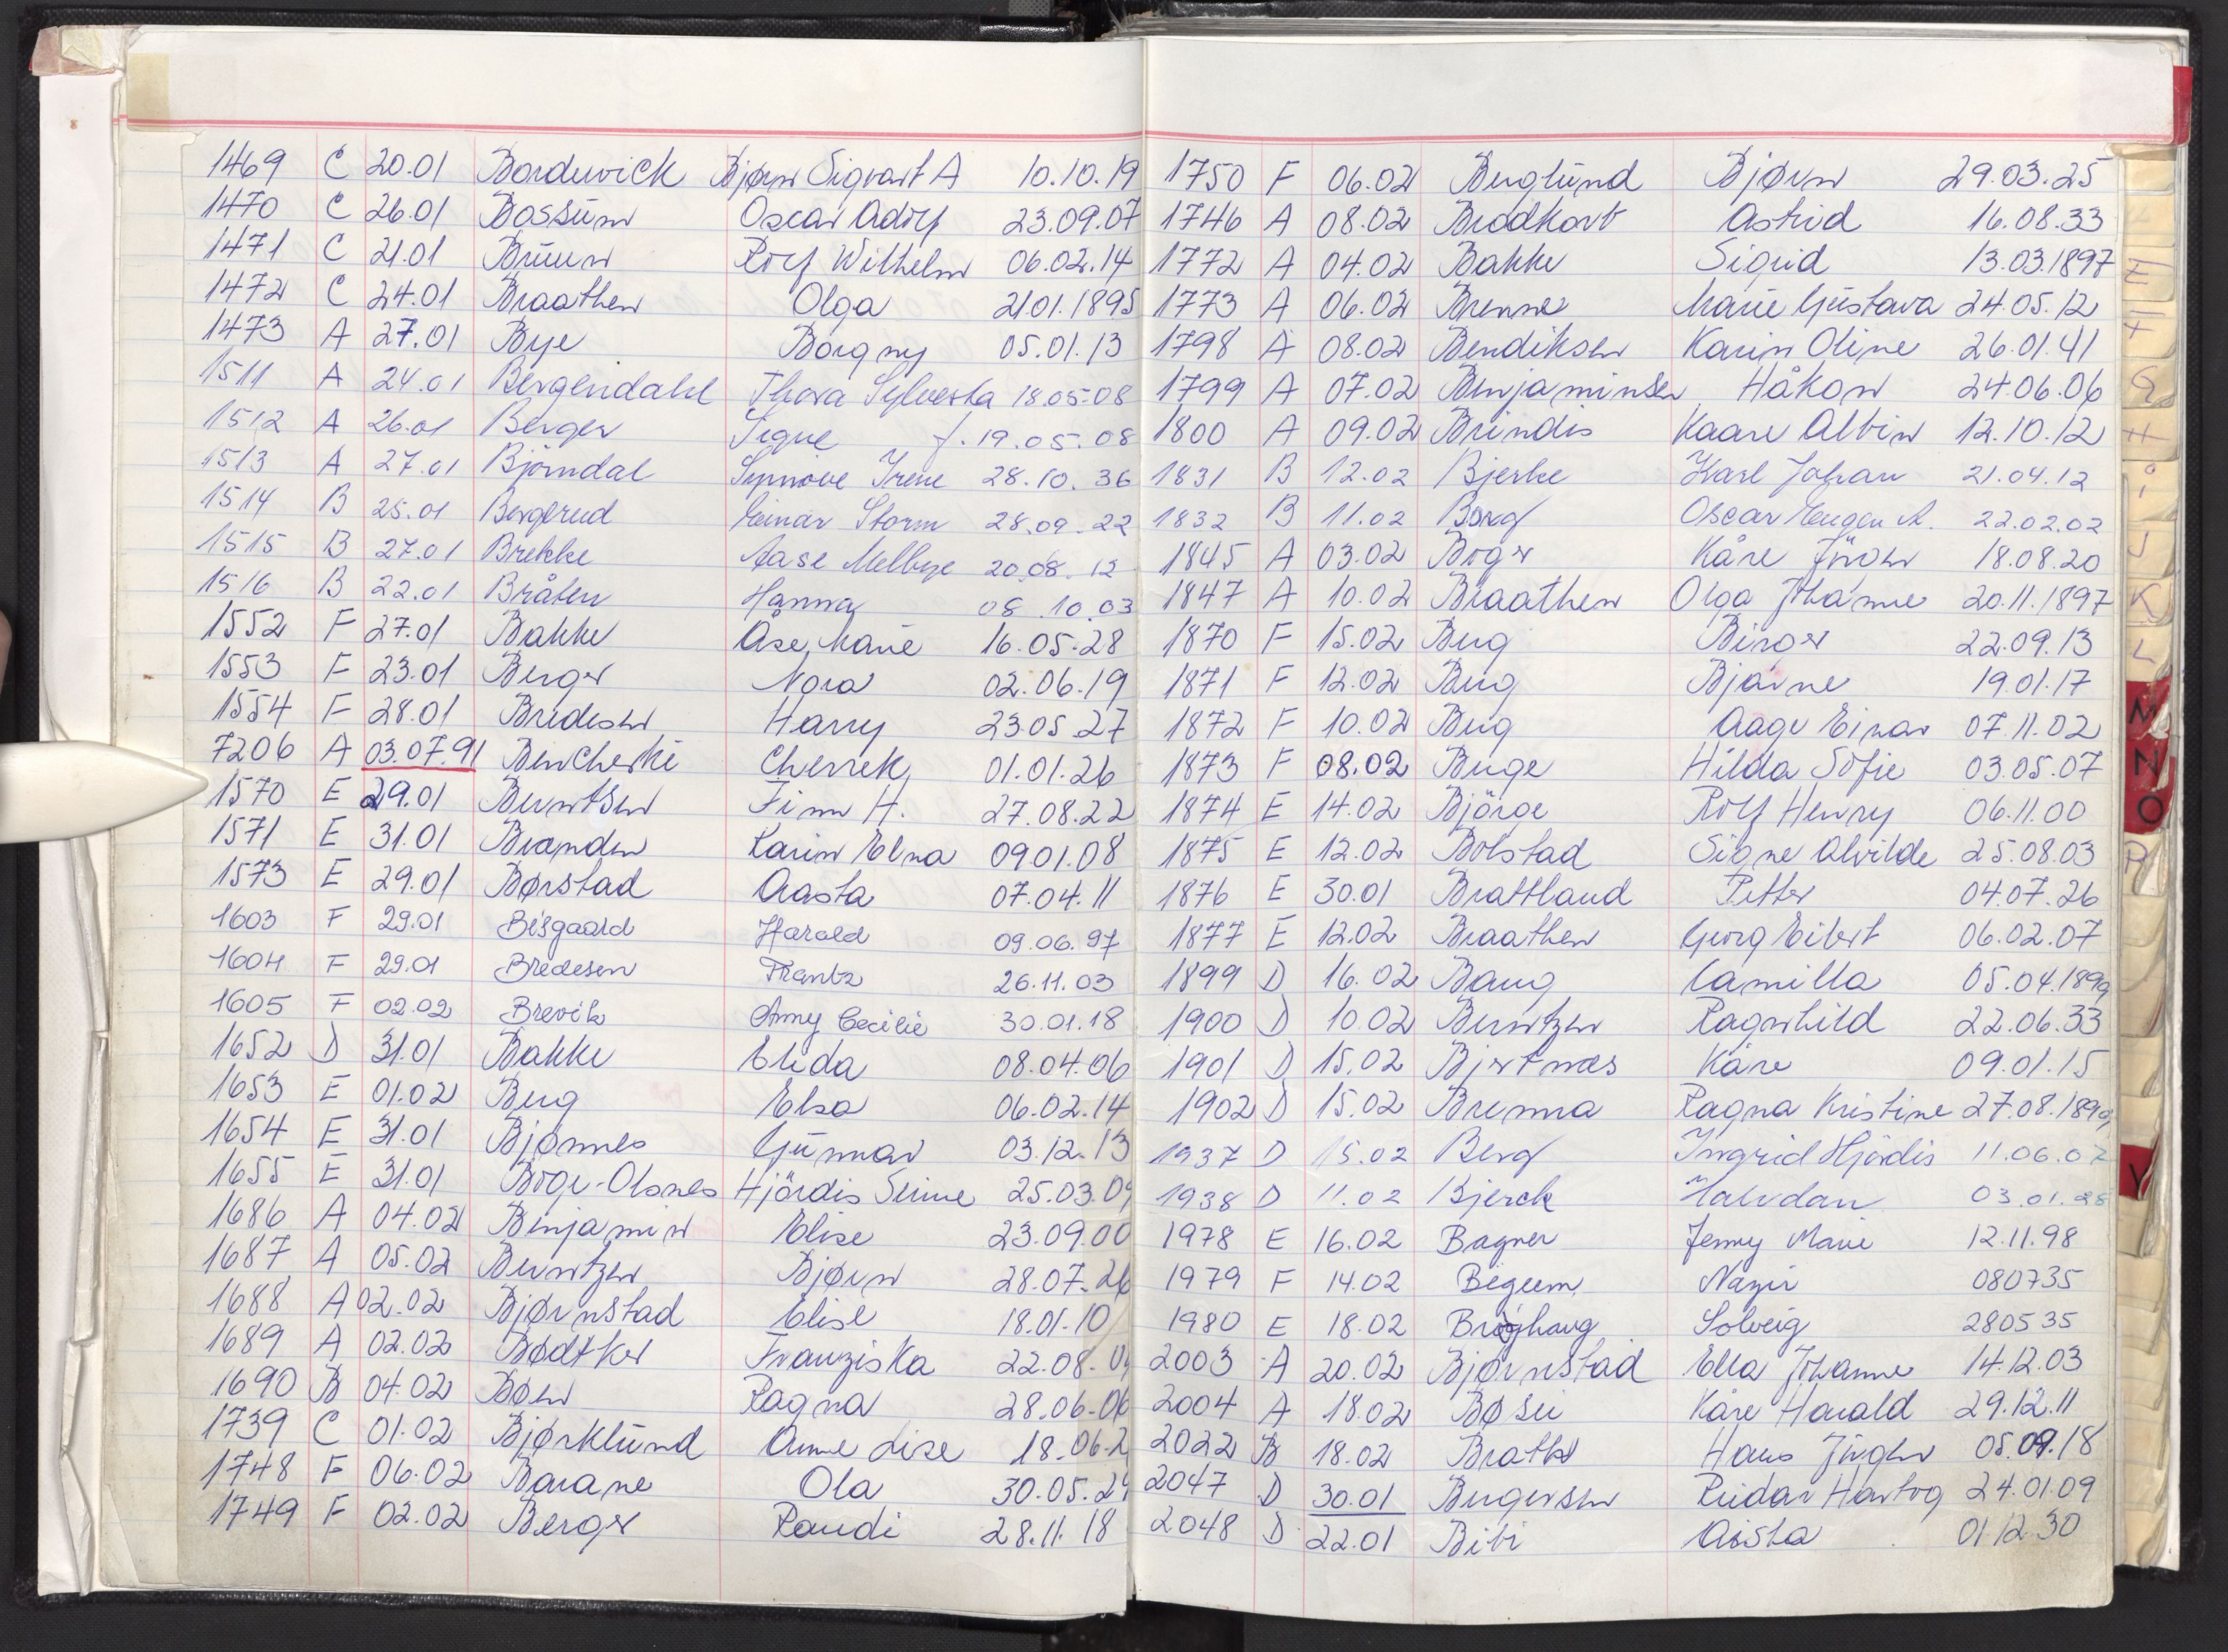 1469 C 20.01 Borderwick Bjørn Sigvart A 10.10.19
1470 C 26.01 Bossum Oscar Adolf 23.09.07
1471 C 21.01 Bruun Rolf Wilhelm 06.02.14
1472 C 24.01 Braathen Olga 21.01.1895
1473 A 27.01 Bye Borgny 05.01.13
1511 A 24.01 Bergendahl Thora Sylvesta 18.05.08
1512 A 26.01 Berger Signe f. 19.05.08
1513 A 27.01 Björndal Synnöve Irene 28.10.36
1514 B 25.01 Bergerud Einar Storm 28.09.22
1515 B 27.01 Brekke Aase Melbye 20.08.12
1516 B 22.01 Bråten Hanna 08.10.03
1552 F 27.01 Bakke Åse Marie 16.05.28
1553 F 23.01 Berger Nora 02.06.19
1554 F 28.01 Bredesen Harry 23.05.27
7206 A 03.07.91 BenCherki Cherrek 01.01.26
1570 E 29.01 Berntsen Finn H. 27.08.22
1571 E 31.01 Branden Karin Elna 09.01.08
1573 E 29.01 Børstad Aasta 07.04.11
1603 F 29.01 Bisgaard Harald 09.06.97
1604 F 29.01 Bredesen Frantz 26.11.03
1605 F 02.02 Brevik Amy Cecilie 30.01.18
1652 D 31.01 Bakke Elida 08.04.06
1653 E 01.02 Berg Elsa 06.02.14
1654 E 31.01 Bjønnes Gunnar 03.12.13
1655 E 31.01 Boge-Olsnes Hjördis 25.03.09
1686 A 04.02 Benjamin Elise 23.09.00
1687 A 05.02 Berntzen Bjørn 28.07.26
1688 A 02.02 Bjørnstad Elise 18.01.10
1689 A 02.02 Bødtker Franziska 22.08.
1690 B 04.02 Bøen Ragna 28.06.06
1739 C 01.02 Bjørklund Anne Lise 18.06.2
1748 F 06.02 Barane Ola 30.05.24
1749 F 02.02 Berger Randi 28.11.18
1750 F 06.02 Berglund Bjørn 29.03.25
1746 A 08.02 Brodkorb Astrid 16.08.33
1772 A 04.02 Bakke Sigrid 13.03.1897
1773 A 06.02 Brenne Marie Gustava 24.05.12
1798 A 08.02 Bendiksen Karin Oline 26.01.41
1799 A 07.02 Benjaminsen Håkon 24.06.06
1800 A 09.02 Brendis Kaare Albin 12.10.12
1831 B 12.02 Bjerke Karl Johan 21.04.12
1832 B 11.02 Borg Oscar Eugen A. 22.02.02
1845 A 03.02 Boger Kåre Jörgen 18.08.20
1847 A 10.02 Braathen Olga Johanne 20.11.1897
1870 F 15.02 Berg Birger 22.09.13
1871 F 12.02 Berg Bjarne 19.01.17
1872 F 10.02 Berg Aage Einar 07.11.02
1873 F 08.02 Berge Hilda Sofie 03.05.07
1874 E 14.02 Björge Rolf Henry 06.11.00
1875 E 12.02 Bolstad Signe Alvilde 25.08.03
1876 E 30.01 Brattland Petter 04.07.26
1877 E 12.02 Braathen Georg Eibert 06.02.07
1899 D 16.02 Baug Camilla 05.04.1899
1900 D 10.02 Berntzen Ragnhild 22.06.33
1901 D 15.02 Bjertnæs Kåre 09.01.15
1902 D 15.02 Brenna Ragna Kristine 27.08.1899
1937 D 15.02 Berg Ingrid Hjördis 11.06.07
1938 D 11.02 Bjerck Halvdan 03.01.28
1978 E 16.02 Bagner Jenny Marie 12.11.98
1979 F 14.02 Begum Nazir 080735
1980 E 18.02 Solveig 280535
2003 A 20.02 Bjørnstad Ella Johanne 14.12.03
2004 A 18.02 Bøsei Kåre Harald 29.12.11
2022 B 18.02 Bratlie Hans Jörgen 05.09.18
2047 D 30.01 Bergersen Reidar Hartvig 24.01.09
2048 D 22.01 Bibi Aista 01.12.30
E
F
G
H
i
J
K
L
M
N
O
P
V